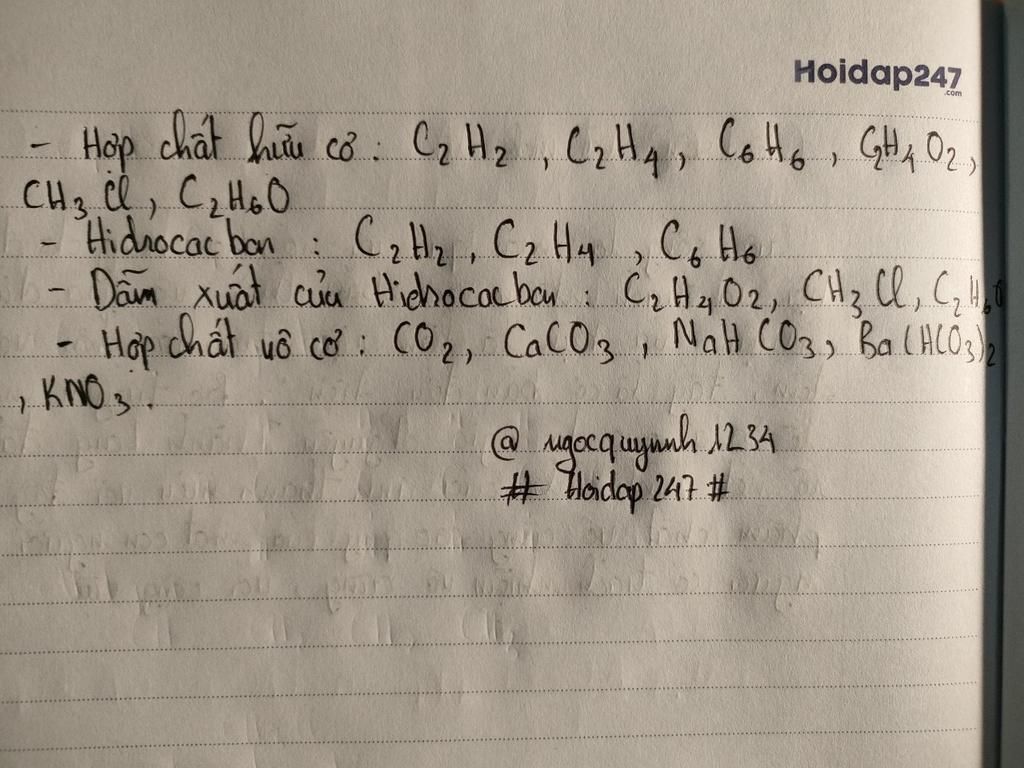 Hoidap247
.com
- Hợp chất hữu cơ : C₂H₂ , C₂H₄ , C₆H₆ , C₂H₄O₂ ,
CH₃Cl , C₂H₆O
- Hidrocacbon : C₂H₂ , C₂H₄ , C₆H₆
- Dẫn xuất của Hidrocacbon : C₂H₄O₂ , CH₃Cl , C₂H₆O
- Hợp chất vô cơ : CO₂ , CaCO₃ , NaHCO₃ , Ba(HCO₃)₂
, KNO₃ .
@ ngocquynnh1234
# Hoidap247 #